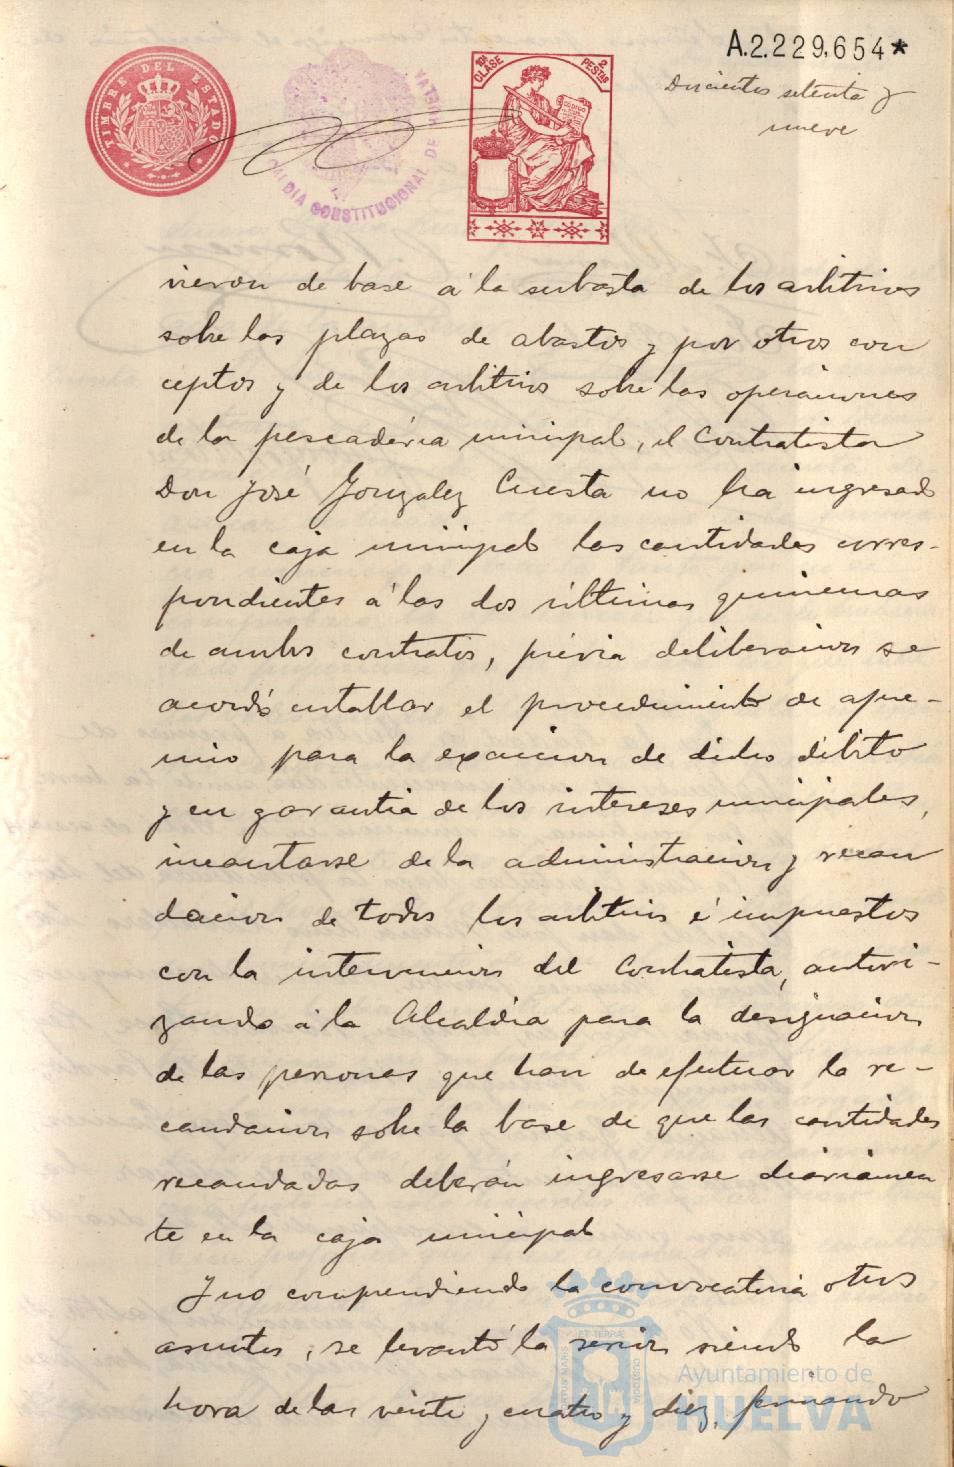 A.2.229,654*
Doscientos setenta y
nueve
TIMBRE DEL ESTADO
ALCALDIA CONSTITUCIONAL DE HUELVA
10ª CLASE
2 PESTAS
vieron de base á la subasta de los arbitrios
sobre las plazas de abastos y por otros con
ceptos y de los arbitrios sobre las operaciones
de la pescadería municipal, el Contratista
Don José Gonzalez Cuesta no ha ingresado
en la caja municipal las cantidades corres-
pondientes á las dos últimas quincenas
de ambos contratos, prévia deliberacion se
acordó entablar el procedimiento de apre-
mio para la exaccion de dicho débito
y en garantia de los intereses municipales,
incautarse de la administracion y recau
dacion de todos los arbitrios é impuestos
con la intervencion del Contratista, autori-
zando á la Alcaldía para la designacion
de las personas que han de efectuar la re-
caudacion sobre la base de que las cantidades
recaudadas deberán ingresarse diáriamen
te en la caja municipal
Y no comprendiendo la convocatoria otros
asuntos, se levantó la sesion siendo la
hora de las veinte y cuatro y diez, firmando
Ayuntamiento de
HUELVA